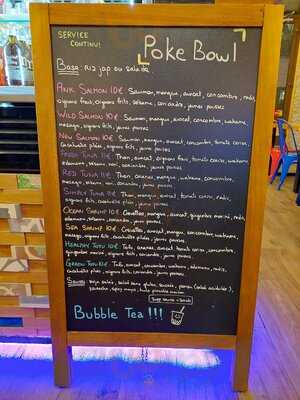 SERVICE
CONTINU!
Poke Bowl
Base: Riz jap ou salade
PINK SALMON 10€ Saumon, mangue, avocat, concombre, radis,
oignons frais, oignons frits, sésame, coriandre, jeunes pousses
WILD SALMON 10€ Saumon, mangue, avocat, concombre, wakame,
masago, oignons frits, jeunes pousses
NEW SALMON 10€ Saumon, avocat, concombre, tomate cerise,
cacahuète pilée, oignons frits, jeunes pousses
FRESH TUNA 11€ Thon, avocat, oignon frais, tomate cerise, wakame,
edamame, sésame, nori, jeunes pousses
RED TUNA 11€ Thon, ananas, mangue, wakame,
masago, sésame, nori, coriandre, jeunes pousses
SIMPLY TUNA 11€ Thon, mangue, avocat, tomate cerise, radis,
oignons frits, jeunes pousses
OCEAN SHRIMP 10€ Crevettes, mangue, avocat, gingembre mariné, radis,
edamame, sésame, coriandre, jeunes pousses
SEA SHRIMP 10€ Crevettes, avocat, mangue, concombre, wakame,
masago, oignons frits, cacahuète pilée, jeunes pousses
HEALTHY TOFU 10€ Tofu, avocat, tomate cerise, concombre,
gingembre mariné, oignons frits, jeunes pousses
GREEN TOFU 10€ Tofu, avocat, concombre, wakame, edamame, radis,
cacahuète pilée, oignons frits, coriandre, jeunes pousses
Sauces: soja salé, soja sucré, ponzu
sriracha, spicy mayo
Bubble Tea !!!